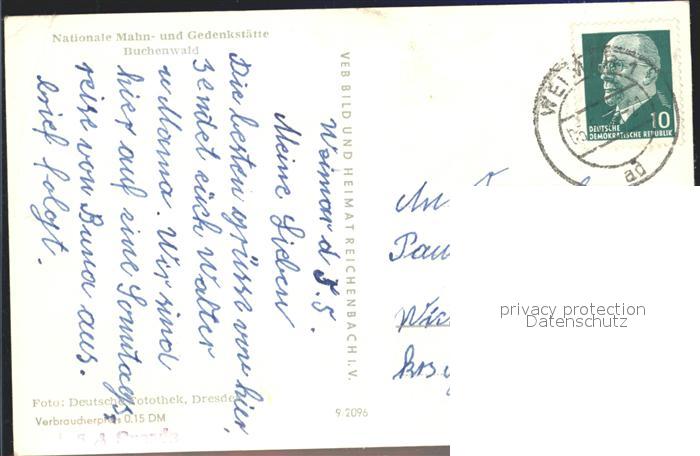 Nationale Mahn- und Gedenkstätte
Buchenwald
Weimar d 5.5.
Meine Lieben
Die besten Grüsse von hier
sendet euch Walter
u Mama. Wir sind
hier auf eine Sonntags
reise von Buna aus.
brief folgt.
Foto: Deutsche Fotothek, Dresden
Verbraucherpreis 0.15 DM
VEB BILD UND HEIMAT REICHENBACH I. V.
9/2096
WEIMAR 1
ad
10
DEUTSCHE
DEMOKRATISCHE REPUBLIK
An
Pau
privacy protection
Datenschutz